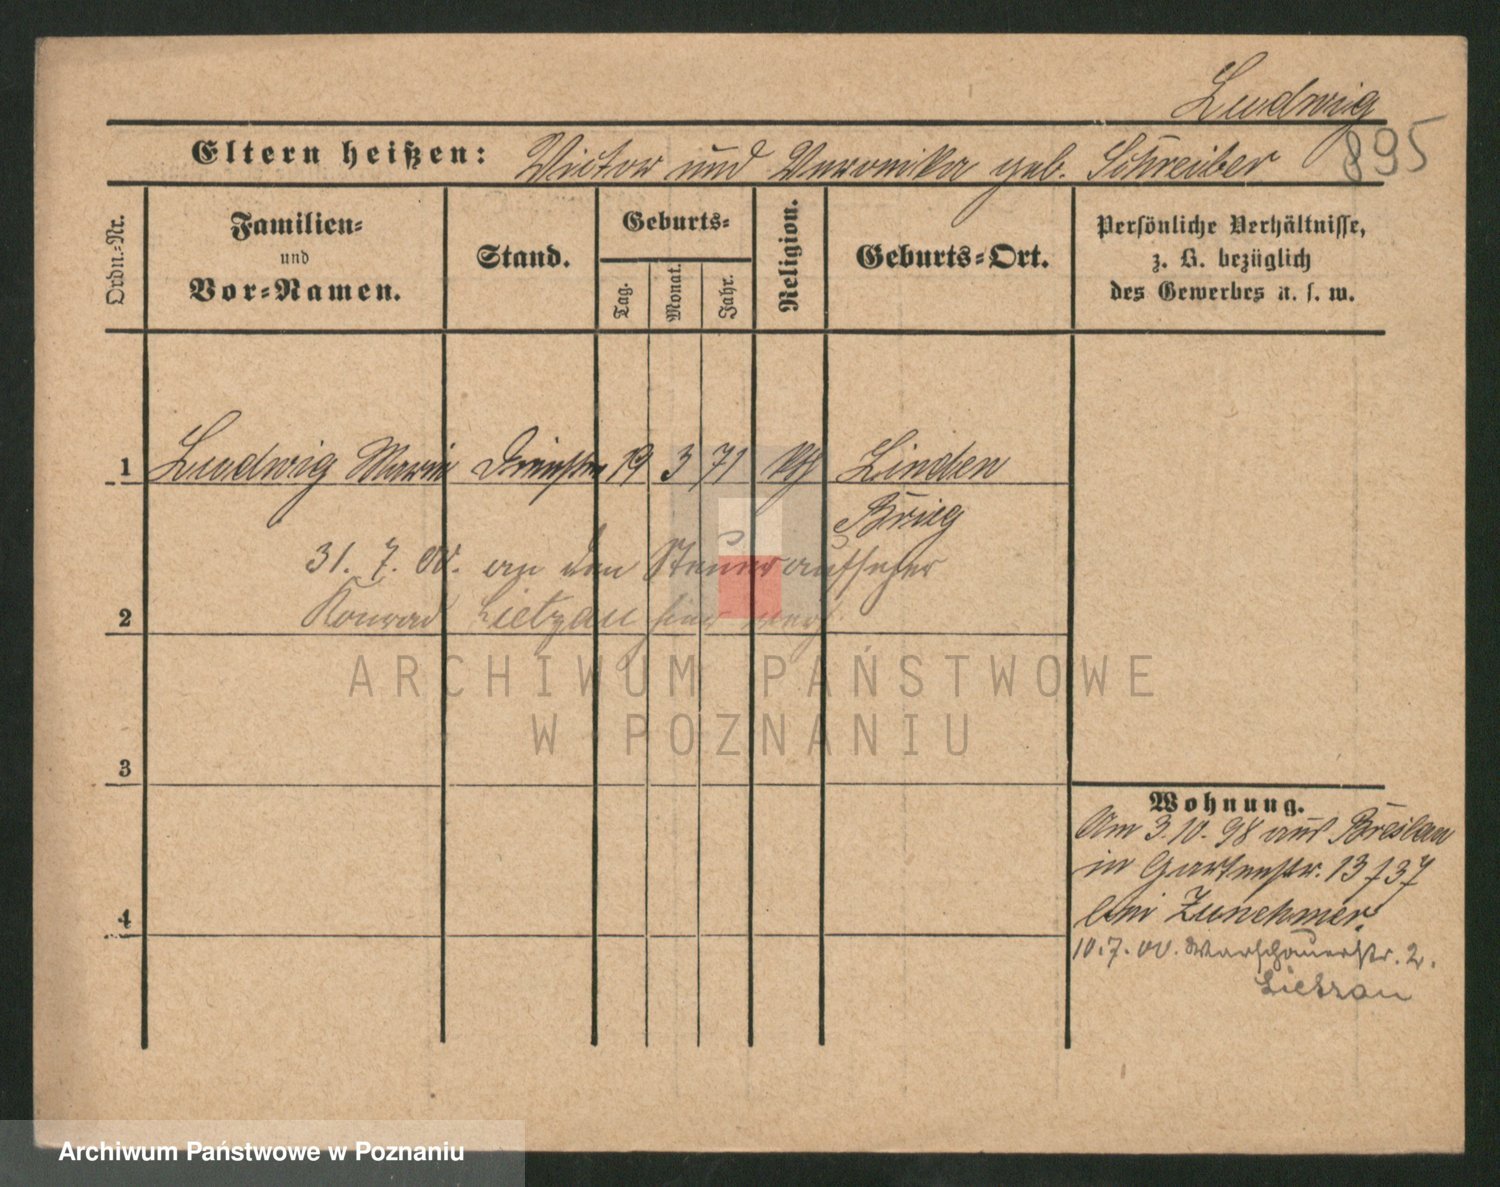 Ludwig
895
Eltern heißen: Victor und Veronika geb. Schreiber
Ordn.-Nr.
Familien-
und
Vor-Namen.
Stand.
Geburts-
Tag.
Monat.
Jahr.
Religion.
Geburts-Ort.
Persönliche Verhältnisse,
z. B. bezüglich
des Gewerbes u. s. w.
1 Ludwig Marie 19 3 71 Linden
Brieg
31. 7. 00. an den Steueraufseher
2 Konrad Lietzau hier verh.
3
4
Wohnung.
Am 3.10.98 aus Breslau
in Gartenstr. 13 f 37
bei Zunehmer.
10.7.00. Warschauerstr. 2.
Lietzau
ARCHIWUM PAŃSTWOWE
W POZNANIU
Archiwum Państwowe w Poznaniu